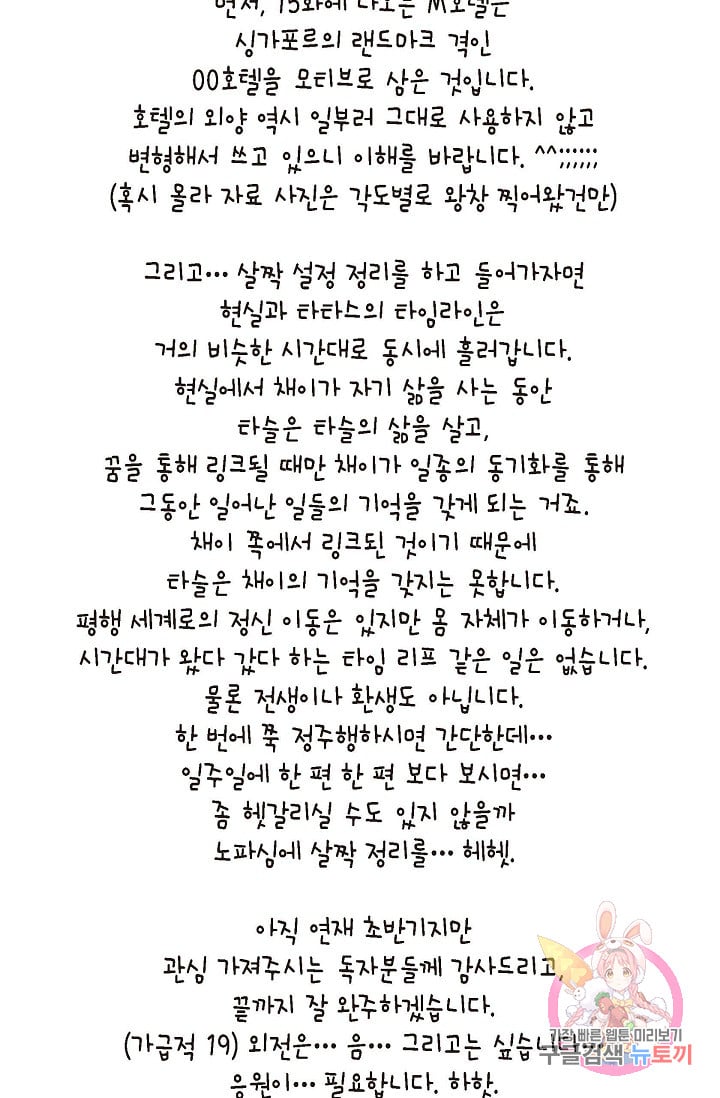 먼저, 15화에 나오는 M호텔은
싱가포르의 랜드마크 격인
OO호텔을 모티브로 삼은 것입니다.
호텔의 외양 역시 일부러 그대로 사용하지 않고
변형해서 쓰고 있으니 이해를 바랍니다. ^^;;;;;;
(혹시 몰라 자료 사진은 각도별로 왕창 찍어왔건만)
그리고… 살짝 설정 정리를 하고 들어가자면
현실과 타타스의 타임라인은
거의 비슷한 시간대로 동시에 흘러갑니다.
현실에서 채이가 자기 삶을 사는 동안
타슬은 타슬의 삶을 살고,
꿈을 통해 링크될 때만 채이가 일종의 동기화를 통해
그동안 일어난 일들의 기억을 갖게 되는 거죠.
채이 쪽에서 링크된 것이기 때문에
타슬은 채이의 기억을 갖지는 못합니다.
평행 세계로의 정신 이동은 있지만 몸 자체가 이동하거나,
시간대가 왔다 갔다 하는 타임 리프 같은 일은 없습니다.
물론 전생이나 환생도 아닙니다.
한 번에 쭉 정주행하시면 간단한데…
일주일에 한 편 한 편 보다 보시면…
좀 헷갈리실 수도 있지 않을까
노파심에 살짝 정리를… 헤헷.
아직 연재 초반기지만
관심 가져주시는 독자분들께 감사드리고,
끝까지 잘 완주하겠습니다.
(가급적 19) 외전은… 음… 그리고는 싶습니다
응원이… 필요합니다. 하핫.
가장 빠른 웹툰 미리보기
구글검색 뉴토끼